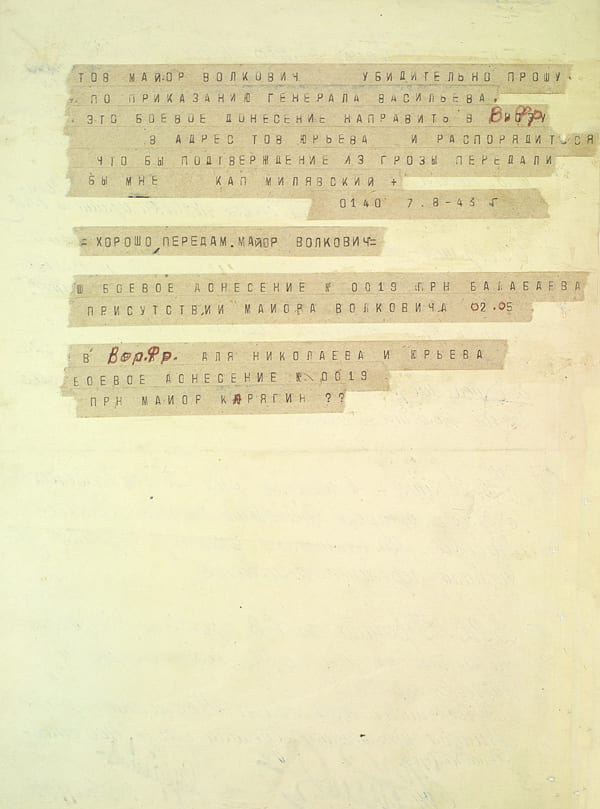 ТОВ МАЙОР ВОЛКОВИЧ УБИДИТЕЛЬНО ПРОШУ
ПО ПРИКАЗАНИЮ ГЕНЕРАЛА ВАСИЛЬЕВА,
ЭТО БОЕВОЕ ДОНЕСЕНИЕ НАПРАВИТЬ В Вор.Фр.
В АДРЕС ТОВ ЮРЬЕВА И РАСПОРЯДИТЬСЯ
ЧТО БЫ ПОДТВЕРЖДЕНИЕ ИЗ ГРОЗЫ ПЕРЕДАЛИ
БЫ МНЕ КАП МИЛЯВСКИЙ +
0140 7.8-43 Г
=ХОРОШО ПЕРЕДАМ.МАЙОР ВОЛКОВИЧ=
Ш БОЕВОЕ ДОНЕСЕНИЕ № 0019 ПРН БАЛАБАЕВА
ПРИСУТСТВИИ МАИОРА ВОЛКОВИЧА 02.05
В Вор.Фр. ДЛЯ НИКОЛАЕВА И ЮРЬЕВА
БОЕВОЕ ДОНЕСЕНИЕ № 0019
ПРН МАИОР КАРЯГИН ??